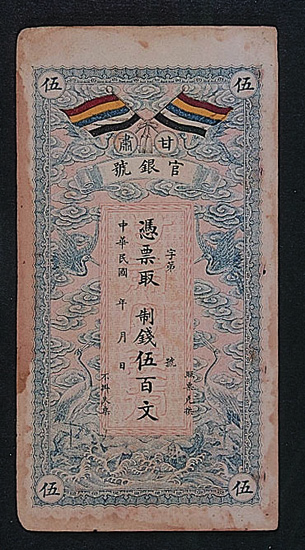 伍 伍
甘肅
官銀號
字第 號
憑票取制錢伍百文
中華民國 年 月 日
認票兌換
不掛失票
伍 伍